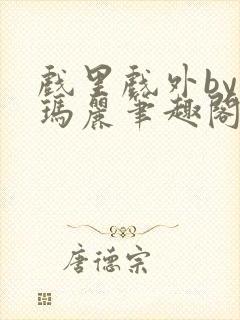 戲里戲外by
瑪麗筆趣閣
唐德宗